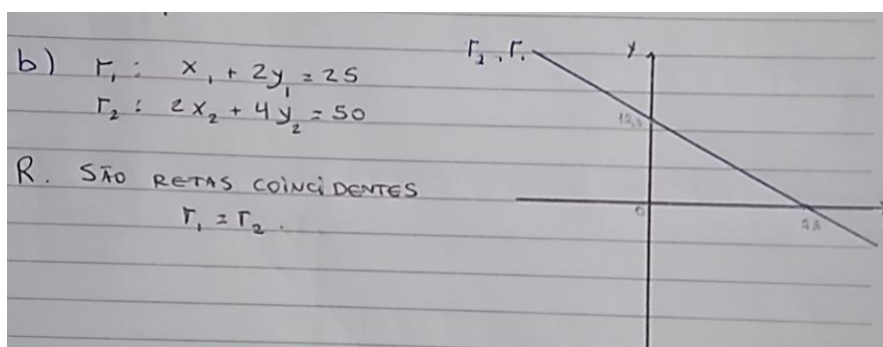 b) r₁ : x₁ + 2y₁ = 25
r₂ : 2x₂ + 4y₂ = 50
R. SÃO RETAS COINCIDENTES
r₁ = r₂ .
r₂ , r₁
y
12,5
0
25